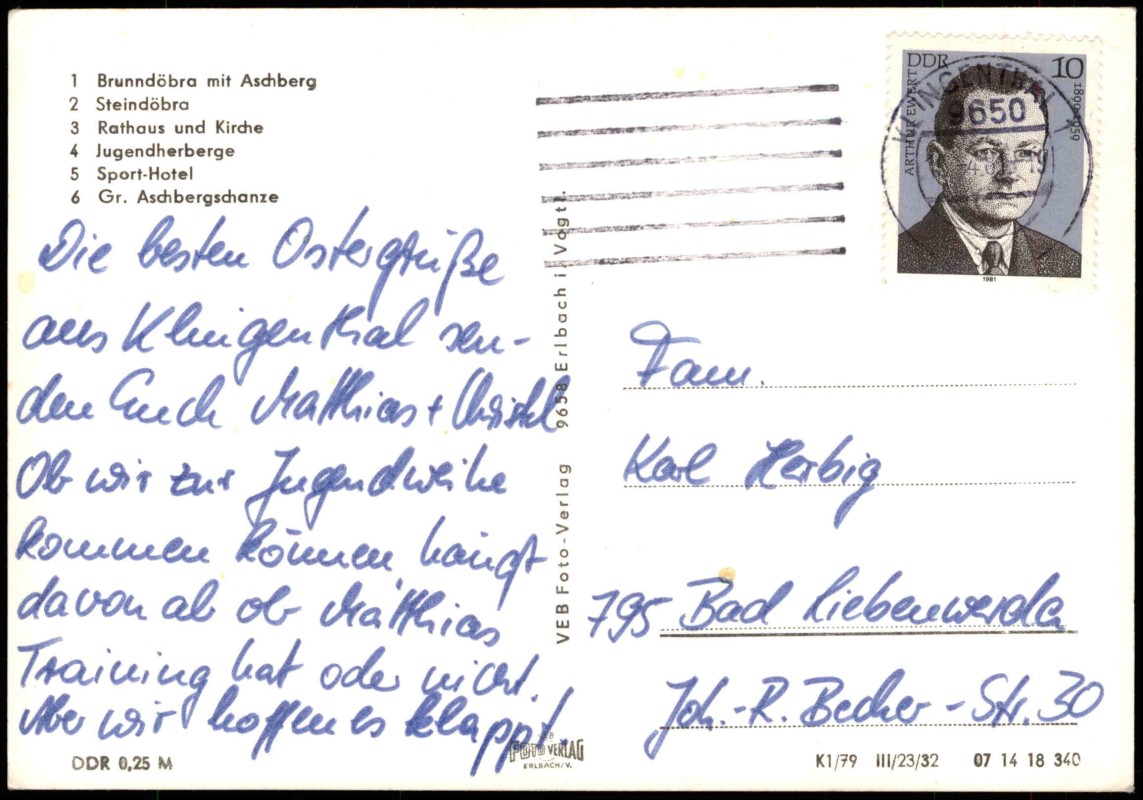 1 Brunndöbra mit Aschberg
2 Steindöbra
3 Rathaus und Kirche
4 Jugendherberge
5 Sport-Hotel
6 Gr. Aschbergschanze
Die besten Ostergrüße
aus Klingenthal sen-
den Euch Matthias + Christel
Ob wir zur Jugendweihe
kommen können hängt
davon ab ob Matthias
Training hat oder nicht.
Aber wir hoffen es klappt!
DDR 0,25 M
VEB Foto-Verlag 9658 Erlbach i. Vogtl.
FOTO VERLAG
ERLBACH/V.
DDR 10
ARTHUR EWERT
1890-1959
1981
KLINGENTHAL 1
9650
Fam.
Karl Herbig
795 Bad Liebenwerda
Joh.-R. Becher-Str. 30
K1/79 III/23/32 07 14 18 340